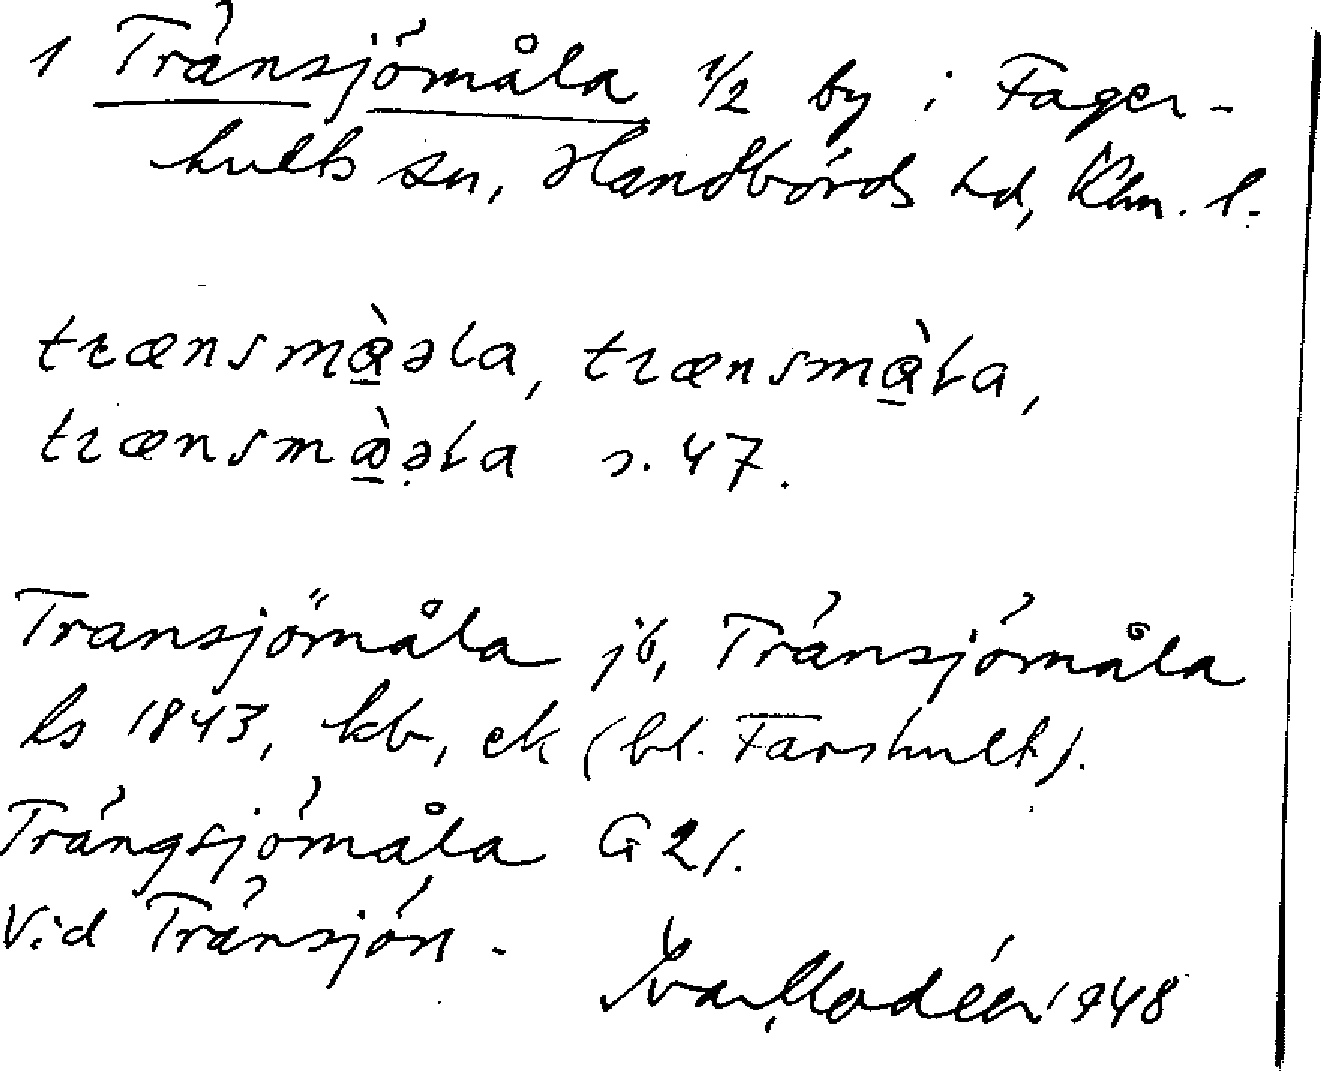 1 Tränsjömåla 1/2 by i Fager-
hults sn, Handbörds hd, Klm. l.
trænsmą̀əla, trænsmą̀la,
trænsmæ̱̀əla s. 47.
Transjömåla jb, Tränsjömåla
hs 1843, kb, ek (bl. Farshult).
Trängsjömåla G 21.
Vid Tränsjön.
Ivar Modéer 1948